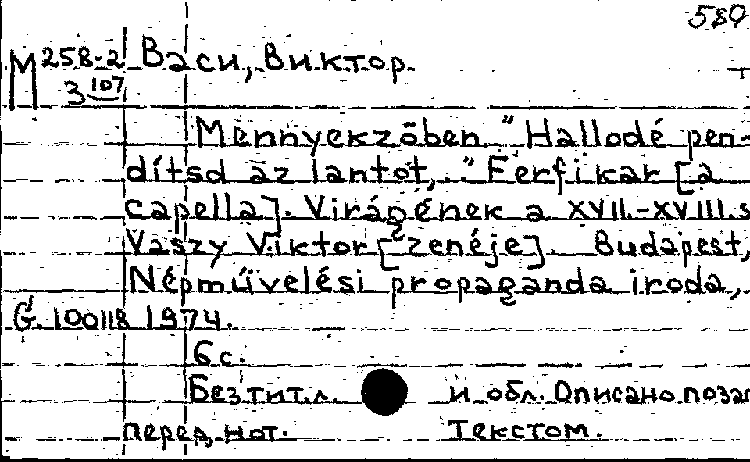 589
М 258-2 Васи, Виктор.
3 107
Mennyekzőben "Hallodé pen-
dítsd az lantot," Férfikar [a
capella]. Virágének a XVII.-XVIII.s
Vaszy Viktor [zenéje]. Budapest,
Népművelési propaganda iroda,
G. 100118 1974.
6 с.
Без тит.л. и обл. Описано по заг
перед нот. текстом.